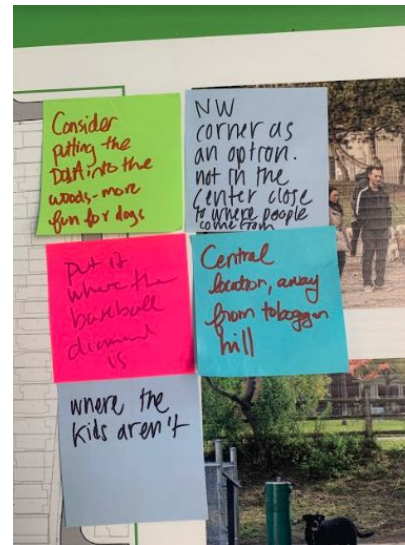 Consider
putting the
DOLA into the
woods - more
fun for dogs
NW
corner as
an option.
not in the
center close
to where people
come from
put it
where the
baseball
diamond
is
Central
location, away
from toboggan
hill
where the
kids aren't